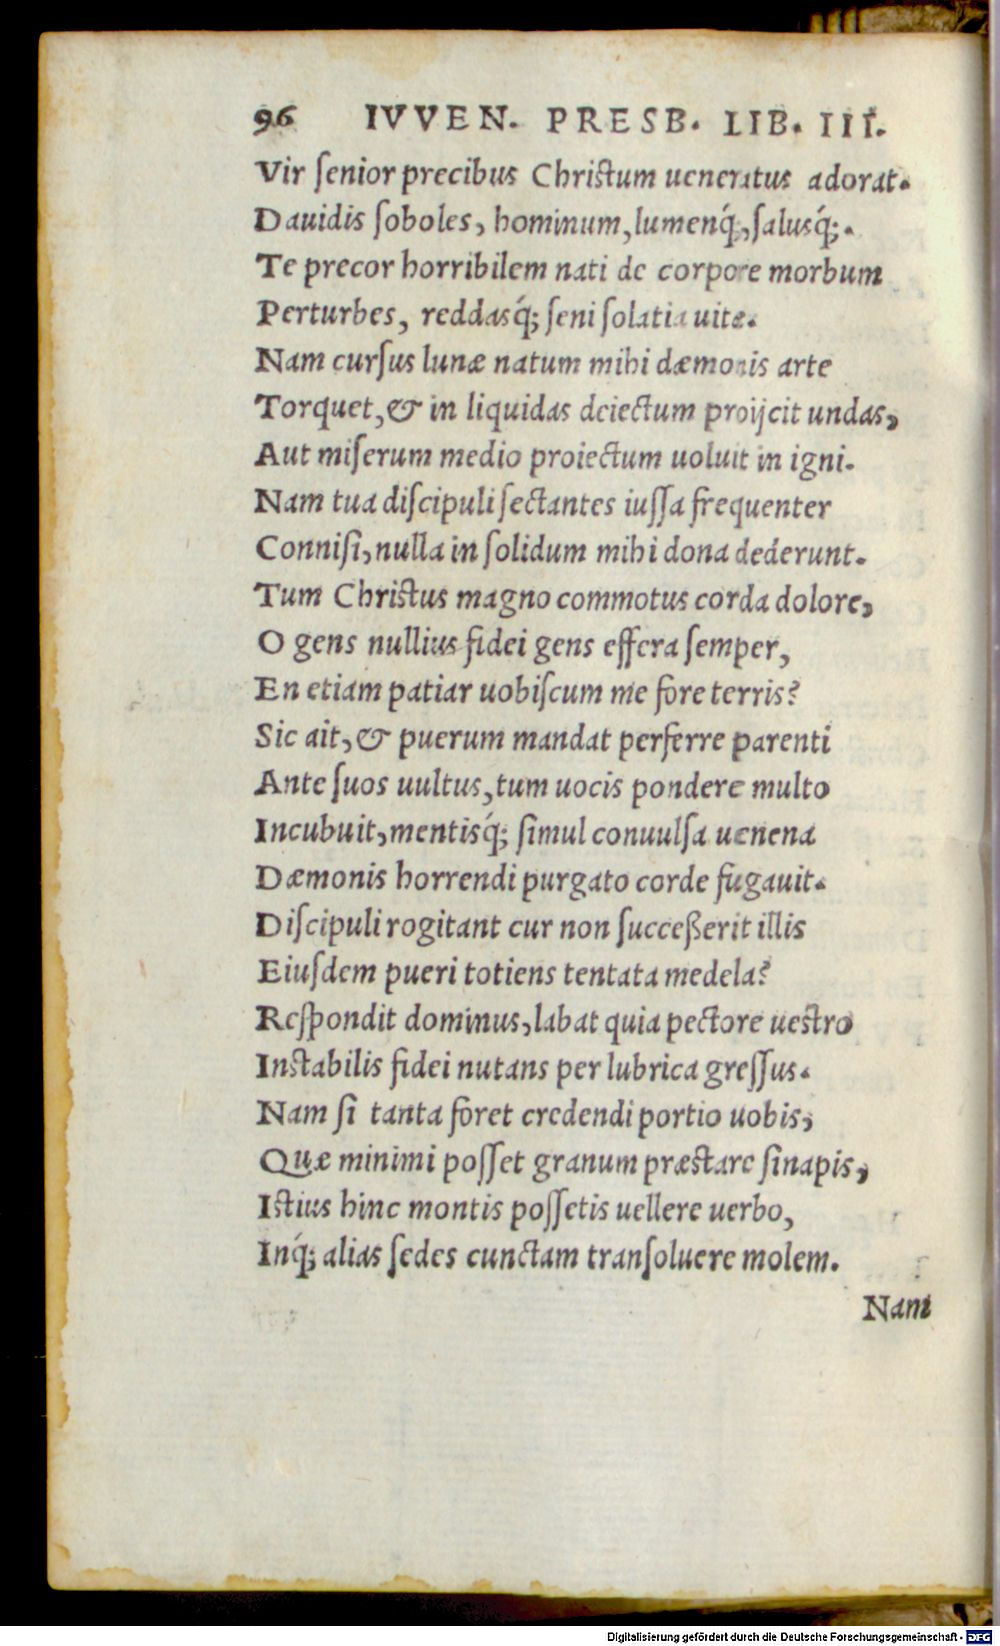 96 IVVEN. PRESB. LIB. III.
Vir ſenior precibus Chriſtum ueneratus adorat.
Dauidis ſoboles, hominum, lumenq́;, ſalusq́;.
Te precor horribilem nati de corpore morbum
Perturbes, reddasq́; ſeni ſolatia uitæ.
Nam curſus lunæ natum mihi dæmonis arte
Torquet, & in liquidas deiectum proijcit undas,
Aut miſerum medio proiectum uoluit in igni.
Nam tua diſcipuli ſectantes iuſſa frequenter
Conniſi, nulla in ſolidum mihi dona dederunt.
Tum Chriſtus magno commotus corda dolore,
O gens nullius fidei gens effera ſemper,
En etiam patiar uobiſcum me fore terris?
Sic ait, & puerum mandat perferre parenti
Ante ſuos uultus, tum uocis pondere multo
Incubuit, mentisq́; ſimul conuulſa uenena
Dæmonis horrendi purgato corde fugauit.
Diſcipuli rogitant cur non ſucceßerit illis
Eiuſdem pueri totiens tentata medela?
Reſpondit dominus, labat quia pectore ueſtro
Inſtabilis fidei nutans per lubrica greſſus.
Nam ſi tanta foret credendi portio uobis,
Quæ minimi poſſet granum præſtare ſinapis,
Iſtius hinc montis poſſetis uellere uerbo,
Inq́; alias ſedes cunctam tranſoluere molem.
Nam
Digitalisierung gefördert durch die Deutsche Forschungsgemeinschaft - DFG